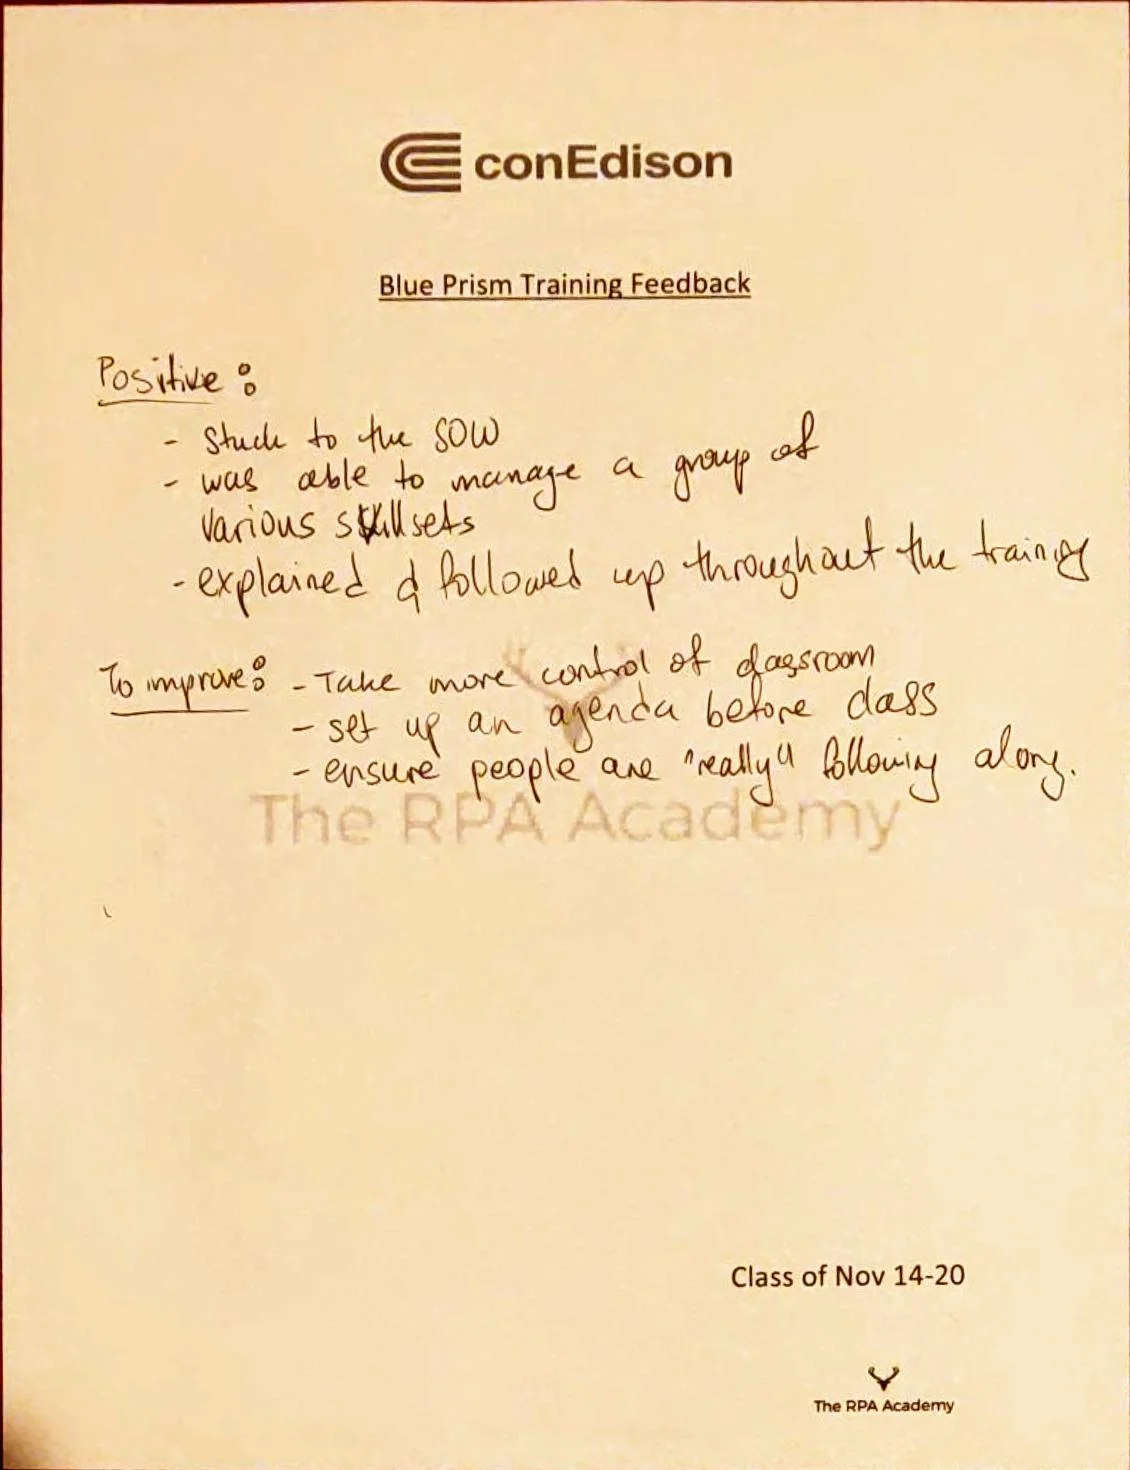 conEdison
Blue Prism Training Feedback
Positive:
- Stuck to the SOW
- was able to manage a group of
various skillsets
- explained & followed up throughout the training
To improve: - Take more control of classroom
- set up an agenda before class
- ensure people are "really" following along.
The RPA Academy
Class of Nov 14-20
The RPA Academy